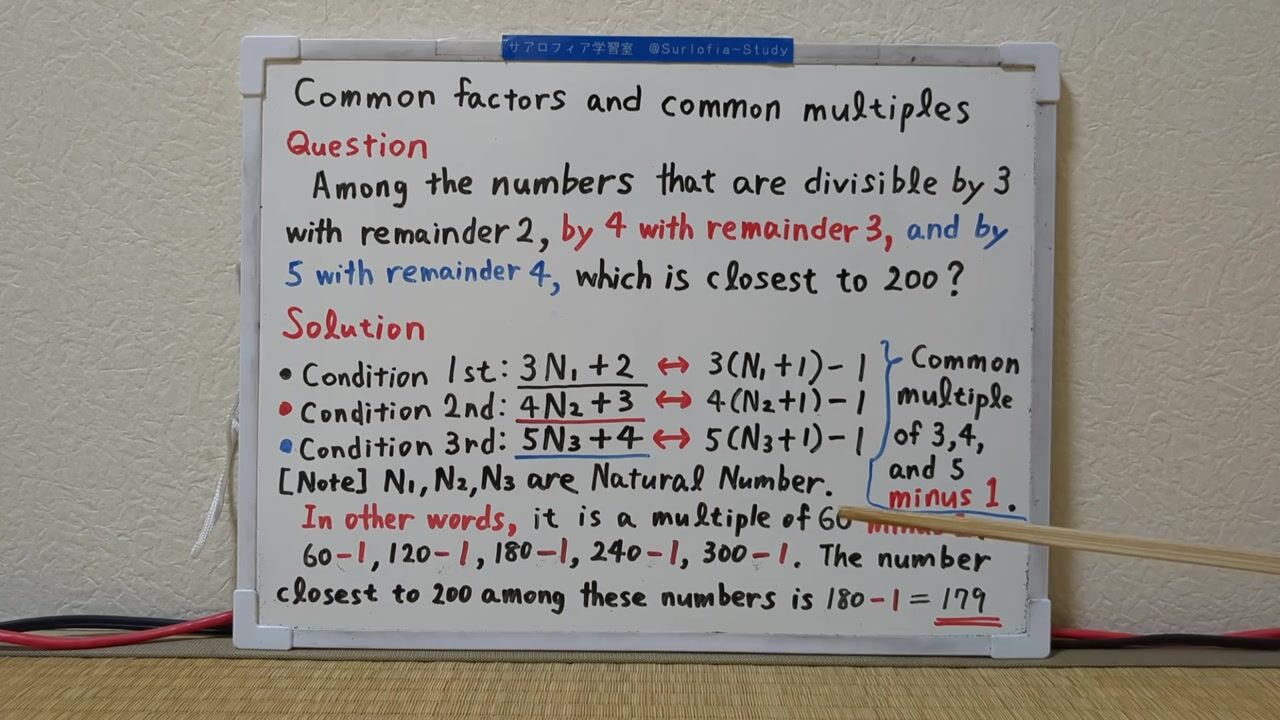 サアロフィア学習室 @Surlofia-Study
Common factors and common multiples
Question
Among the numbers that are divisible by 3
with remainder 2, by 4 with remainder 3, and by
5 with remainder 4, which is closest to 200?
Solution
• Condition 1st: 3N₁+2 ↔ 3(N₁+1)-1
• Condition 2nd: 4N₂+3 ↔ 4(N₂+1)-1
• Condition 3rd: 5N₃+4 ↔ 5(N₃+1)-1
Common
multiple
of 3,4,
and 5
minus 1.
[Note] N₁,N₂,N₃ are Natural Number.
In other words, it is a multiple of 60
60-1, 120-1, 180-1, 240-1, 300-1. The number
closest to 200 among these numbers is 180-1=179